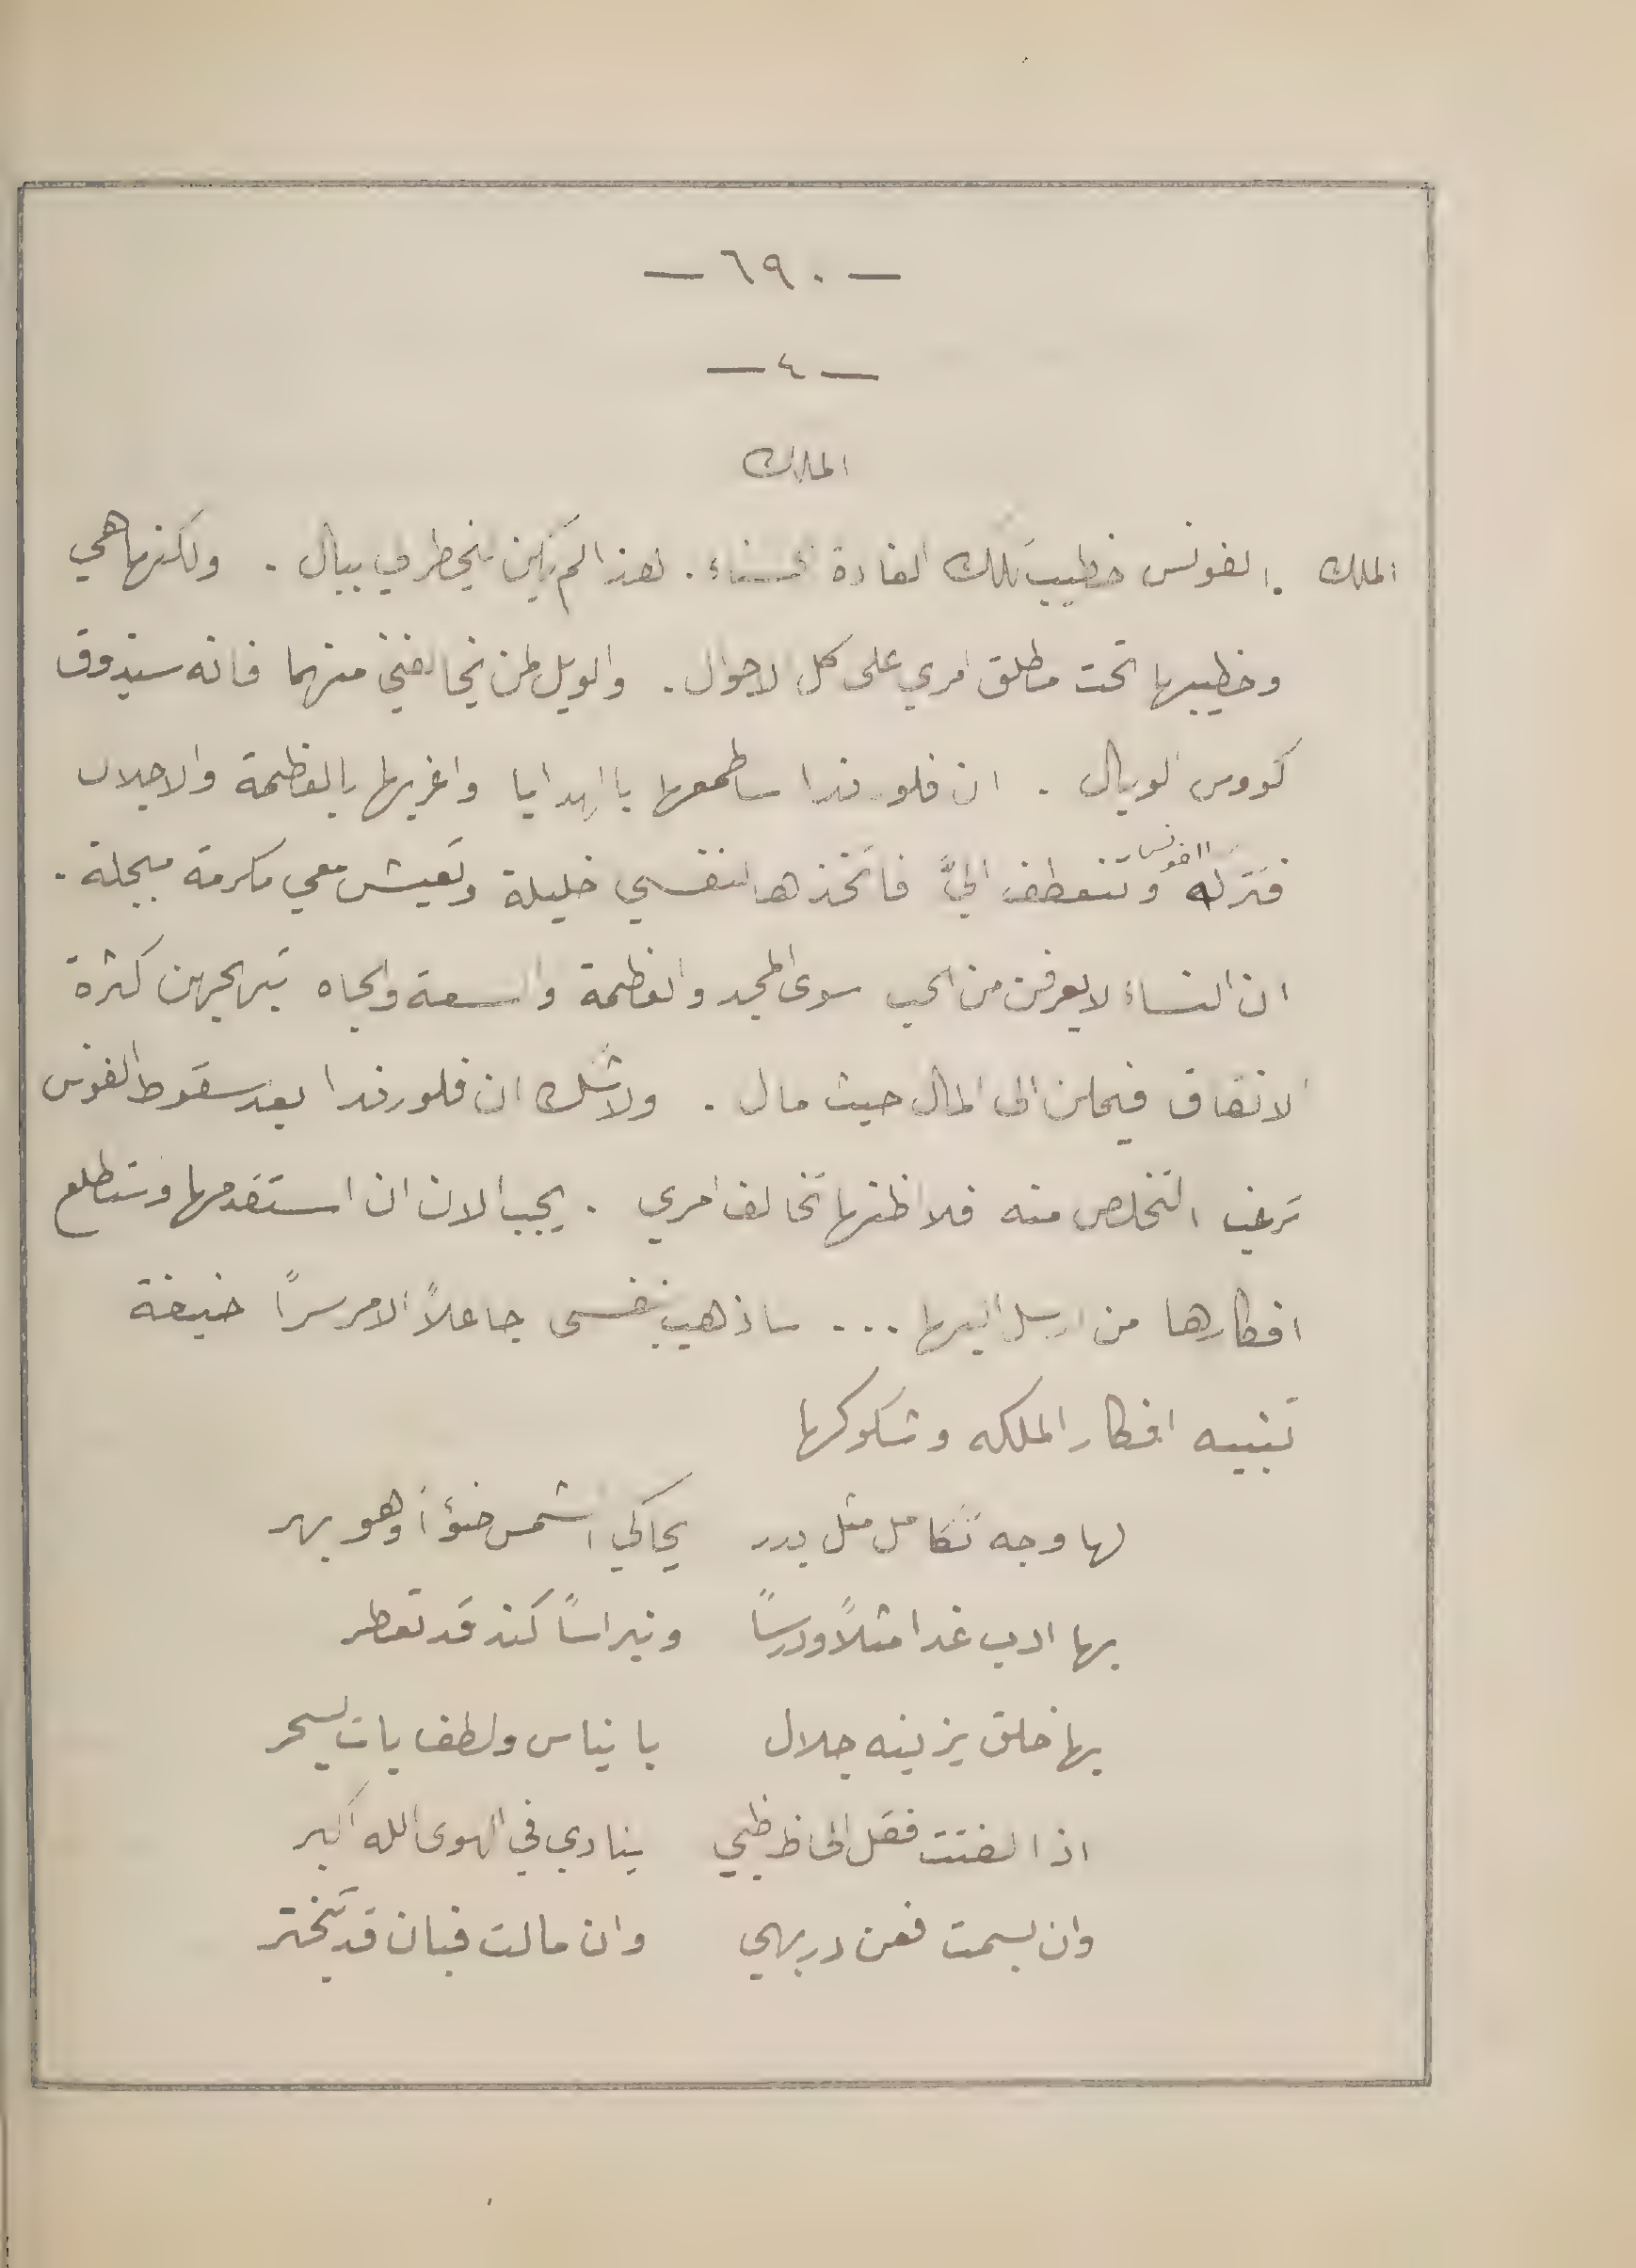 — ٦٩٠ —
— ٤ —
الملك
الملك . الفونس خطيب تلك الغادة الحسناء . لهذا لم يكن يخطر في ببال . ولكنها هي
وخطيبها تحت مطلق امري على كل الاحوال . والويل لمن يخالفني منهما فانه سيذوق
كووس الوبال . ان فلورندا ساطمعها بالهدايا واغريها بالعظمة والاجلال
فتترك الفونس وتنعطف اليَّ فاتخذها لنفسي خليلة وتعيش معي مكرمة مبجلة .
ان النساء لا يعرفن من الحب سوى المجد والعظمة والسعة والجاه يبهرجهن كثرة
الانفاق فيملن الى المال حيث مال . ولا شك ان فلورندا بعد سقوط الفونس
ترغب التخلص منه فلا اظنها تخالف امري . يجب الان ان استقدمها وستطلع
افكارها من ارسل اليها ... ساذهب بنفسى جاعلاً الامر سراً خيفة
تنبيه افكار الملكه وشكوكها
لها وجه تكامل مثل بدر يحاكي الشمس ضؤاً وهو يهر
بها ادب غدا مثلاً ودرساً ونبراساً كند قد تعطر
بها خلق يزينه جلال بايناس ولطف بات يسحر
اذا التفتت فقل الحاظ ظبي ينادي في الهوى الله اكبر
وان بسمت فعن در بهي وان مالت فبان قد تبختر